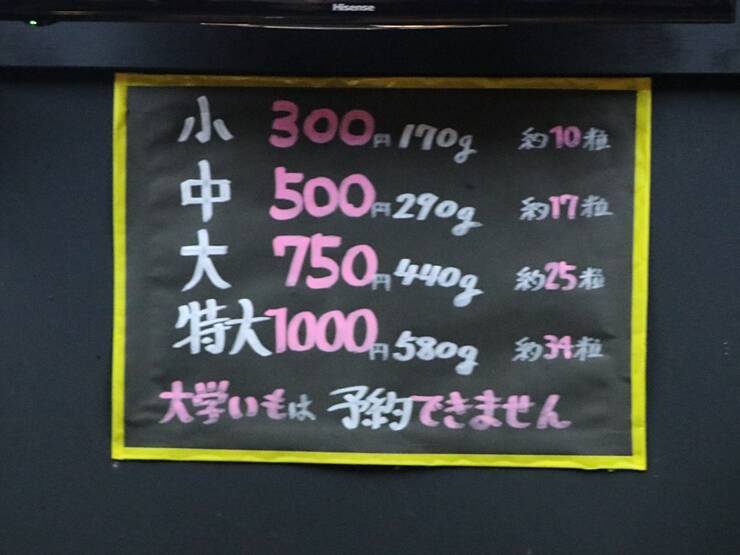 Hisense
小 300円 170g 約10粒
中 500円 290g 約17粒
大 750円 440g 約25粒
特大 1000円 580g 約34粒
大学いもは 予約できません